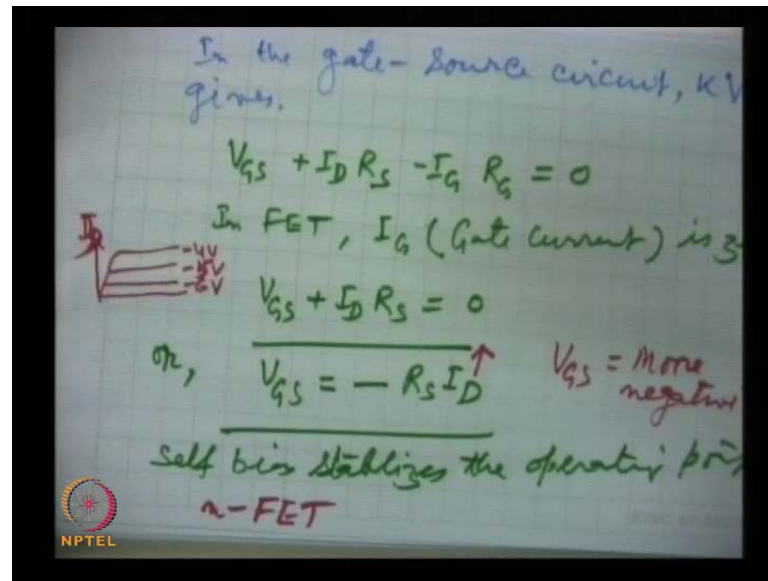 In the gate - Source circuit, KV
gives.
V_GS + I_D R_S - I_G R_G = 0
In FET, I_G (Gate Current) is
I_D
-4V
-5V
-6V
V_GS + I_D R_S = 0
or, V_GS = - R_S I_D ↑
V_GS = More
negative
Self bias stablizes the operating
n-FET
NPTEL